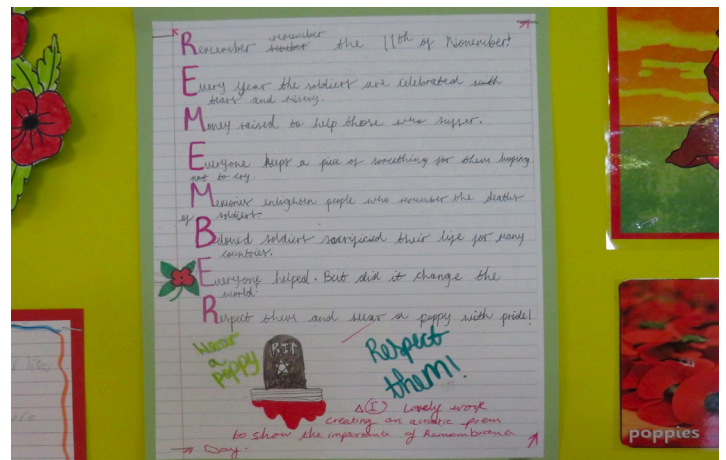 remember
Remember the 11th of November!
Every year the soldiers are celebrated with
tears and misery.
Money raised to help those who suffer.
Everyone keeps a piece of something for them hoping
not to cry.
Memories enlighten people who remember the deaths
of soldiers.
Beloved soldiers sacrificied their life for many
countries.
Everyone helped. But did it change the
world.
Respect them and wear a poppy with pride!
Wear
a
poppy
RIP
Respect
them!
Lovely work
creating an acrostic poem
to show the importance of Remembrance
Day.
poppies